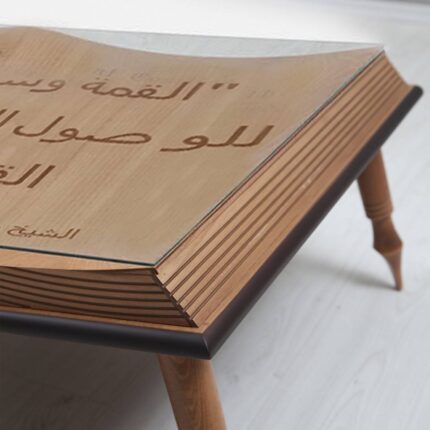 "القمة وس
للوصول ال
الق
الشيخ